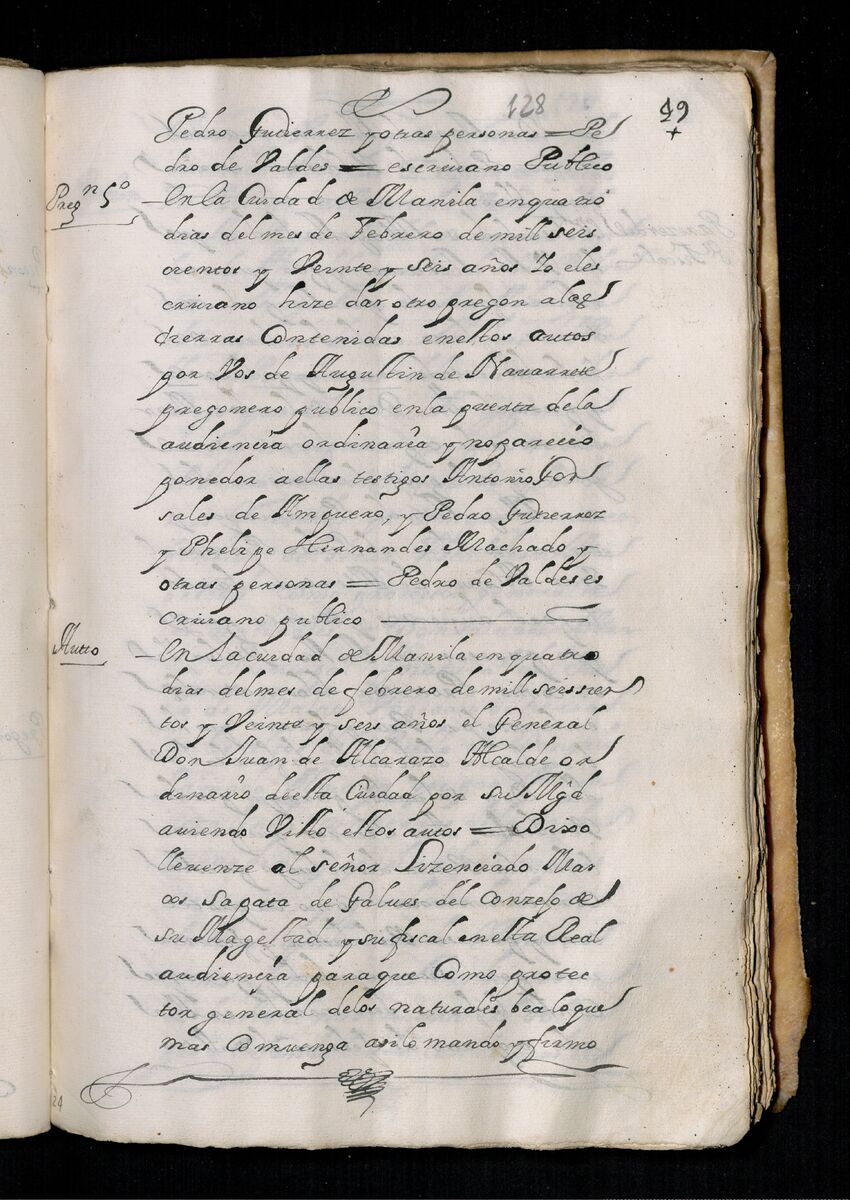 128
49
Pedro Gutierrez y otras personas = Pe
dro de Valdes = escriuano Publico
Pregn 5º
En la Ciudad de Manila en quatro
dias del mes de Febrero de mill seis
cientos y Veinte y seis años Yo el es
criuano hize dar otro pregon a las
tierras Contenidas en estos autos
por Vos de Augustin de Nauarrete
pregonero publico en la puerta de la
audiencia ordinaria y no parecio
ponedor a ellas testigos Antonio Gon
sales de Ampuero, y Pedro Gutierrez
y Phelipe Hernandes Machado y
otras personas = Pedro de Valdes es
criuano publico
Autto
En La ciudad de Manila en quatro
dias del mes de febrero de mill seis sien
tos y Veinte y seis años el General
Don Juan de Alcarazo Alcalde or
dinario de esta Ciudad por su Mgd
auiendo Visto estos autos = Dixo
lleuenze al señor Lizenciado Mar
cos sapata de Galues del Conzejo de
su Magestad y su fiscal en esta Real
audiencia para que Como protec
tor general de los naturales bea lo que
mas Combenga asi lo mando y firmo
24